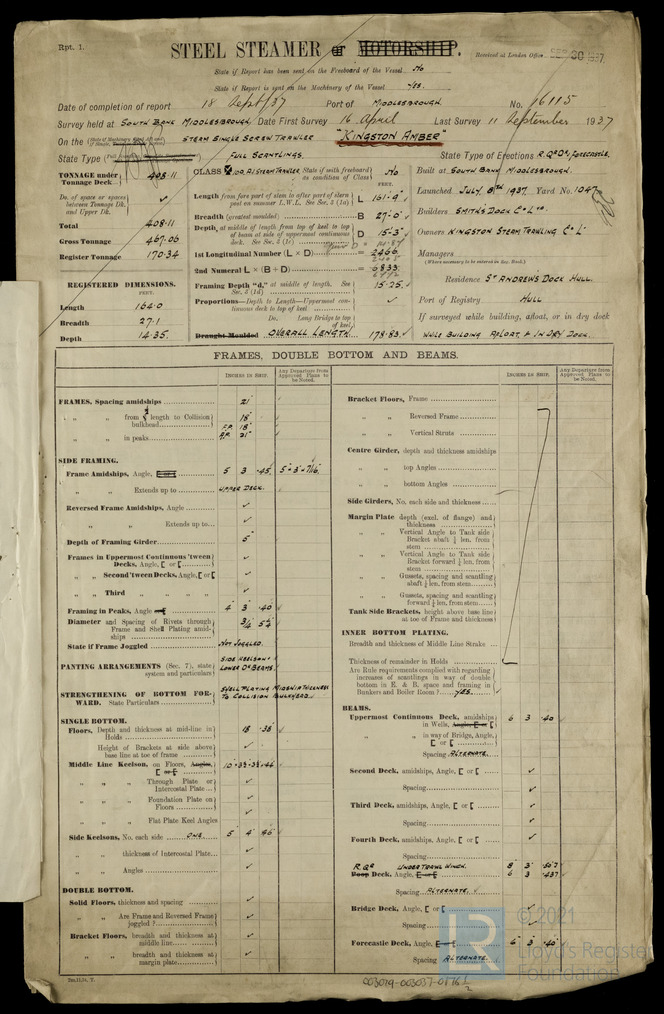 Rpt. 1.
STEEL STEAMER or MOTORSHIP.
Received at London Office SEP 30 1937
State if Report has been sent on the Freeboard of the Vessel No
State if Report is sent on the Machinery of the Vessel Yes.
Date of completion of report 18 Sept/37 Port of MIDDLESBROUGH. No. 16115
Survey held at SOUTH BANK MIDDLESBROUGH. Date First Survey 16 April Last Survey 11 September 1937
On the STEAM SINGLE SCREW TRAWLER "KINGSTON AMBER"
State Type FULL SCANTLINGS. State Type of Erections R.QR DK, FORECASTLE.
TONNAGE under Tonnage Deck 408.11
Do. of space or spaces between Tonnage Dk. and Upper Dk. ✓
Total 408.11
Gross Tonnage 467.06
Register Tonnage 170.34
REGISTERED DIMENSIONS.
FEET.
Length 164.0
Breadth 27.1
Depth 14.35
CLASS 100 A1 STEAM TRAWLER State if with freeboard as condition of Class No
FEET.
Length from fore part of stem to after part of stern post on summer L.W.L. See Sec. 3 (1a) L 161.9
Breadth (greatest moulded) B 27.0
Depth, at middle of length from top of keel to top of beam at side of uppermost continuous deck. See Sec. 3 (1c) D 15.3
1st Longitudinal Number (L × D) = 2466
2nd Numeral L × (B + D) = 6833
Framing Depth "d," at middle of length. See Sec. 3 (1d) 15.25
Proportions—Depth to Length—Uppermost continuous deck to top of keel ✓
Do. Long Bridge to top of keel
Draught Moulded OVERALL LENGTH 178.83
Built at SOUTH BANK MIDDLESBROUGH.
Launched JULY 8TH 1937. Yard No. 1047
Builders SMITH'S DOCK Co Ltd
Owners KINGSTON STEAM TRAWLING Co Ld
Managers
(Where necessary to be entered in the Reg. Book)
Residence ST ANDREWS DOCK HULL.
Port of Registry HULL
If surveyed while building, afloat, or in dry dock
WHILE BUILDING AFLOAT & IN DRY DOCK.
FRAMES, DOUBLE BOTTOM AND BEAMS.
INCHES IN SHIP. Any Departure from Approved Plans to be Noted.
INCHES IN SHIP. Any Departure from Approved Plans to be Noted.
FRAMES, Spacing amidships 21
" " from length to Collision bulkhead 18
" " in peaks F.P. 18 A.P. 21
SIDE FRAMING.
Frame Amidships, Angle, 5 3 .45 5"×3"×7/16
" " Extends up to UPPER DECK.
Reversed Frame Amidships, Angle ✓
" " Extends up to ✓
Depth of Framing Girder 5
Frames in Uppermost Continuous 'tween Decks, Angle, [ or [ ✓
" " Second 'tween Decks, Angle, [ or [ ✓
" " Third " " ✓
Framing in Peaks, Angle 4 3 .40
Diameter and Spacing of Rivets through Frame and Shell Plating amidships 3/4 5 1/4
State if Frame Joggled NOT JOGGLED.
PANTING ARRANGEMENTS (Sec. 7), state system and particulars SIDE KEELSON & LOWER DK BEAMS.
STRENGTHENING OF BOTTOM FORWARD. State Particulars SHELL PLATING MIDSHIP THICKNESS TO COLLISION BULKHEAD.
SINGLE BOTTOM.
Floors, Depth and thickness at mid-line in Holds 18 .38
Height of Brackets at side above base line at toe of frame ✓
Middle Line Keelson, on Floors, Angles, [ or [
" " " Through Plate or Intercostal Plate ✓
" " " Foundation Plate on Floors ✓
" " " Flat Plate Keel Angles ✓
Side Keelsons, No. each side ONE. 5 4 .46
" " thickness of Intercostal Plate ✓
" " Angles ✓
DOUBLE BOTTOM.
Solid Floors, thickness and spacing ✓
" " Are Frame and Reversed Frame joggled? ✓
Bracket Floors, breadth and thickness at middle line ✓
" " breadth and thickness at margin plate ✓
Bracket Floors, Frame
" " Reversed Frame
" " Vertical Struts
Centre Girder, depth and thickness amidships
" " top Angles
" " bottom Angles
Side Girders, No. each side and thickness
Margin Plate depth (excl. of flange) and thickness
" " Vertical Angle to Tank side Bracket abaft 1/4 len. from stem
" " Vertical Angle to Tank side Bracket forward 1/4 len. from stem
" " Gussets, spacing and scantling abaft 1/4 len. from stem
" " Gussets, spacing and scantling forward 1/4 len. from stem
Tank Side Brackets, height above base line at toe of Frame and thickness
INNER BOTTOM PLATING.
Breadth and thickness of Middle Line Strake
Thickness of remainder in Holds
Are Rule requirements complied with regarding increases of scantlings in way of double bottom in E. & B. space and framing in Bunkers and Boiler Room? YES.
BEAMS.
Uppermost Continuous Deck, amidships in Wells, Angle, [ or [ 6 3 .40
" " in way of Bridge, Angle, [ or [
Spacing ALTERNATE.
Second Deck, amidships, Angle, [ or [ ✓
Spacing ✓
Third Deck, amidships, Angle, [ or [ ✓
Spacing ✓
Fourth Deck, amidships, Angle, [ or [ ✓
Spacing
R.QR UNDER TRAWL WINCH. 8 3 .507
Poop Deck, Angle, [ or [ 6 3 .437
Spacing ALTERNATE. ✓
Bridge Deck, Angle, [ or [ ✓
Spacing ✓
Forecastle Deck, Angle, [ or [ 6 3 .40
Spacing ALTERNATE.
003019-003037-0176 1/2
LR
© 2021
Lloyd's Register
Foundation